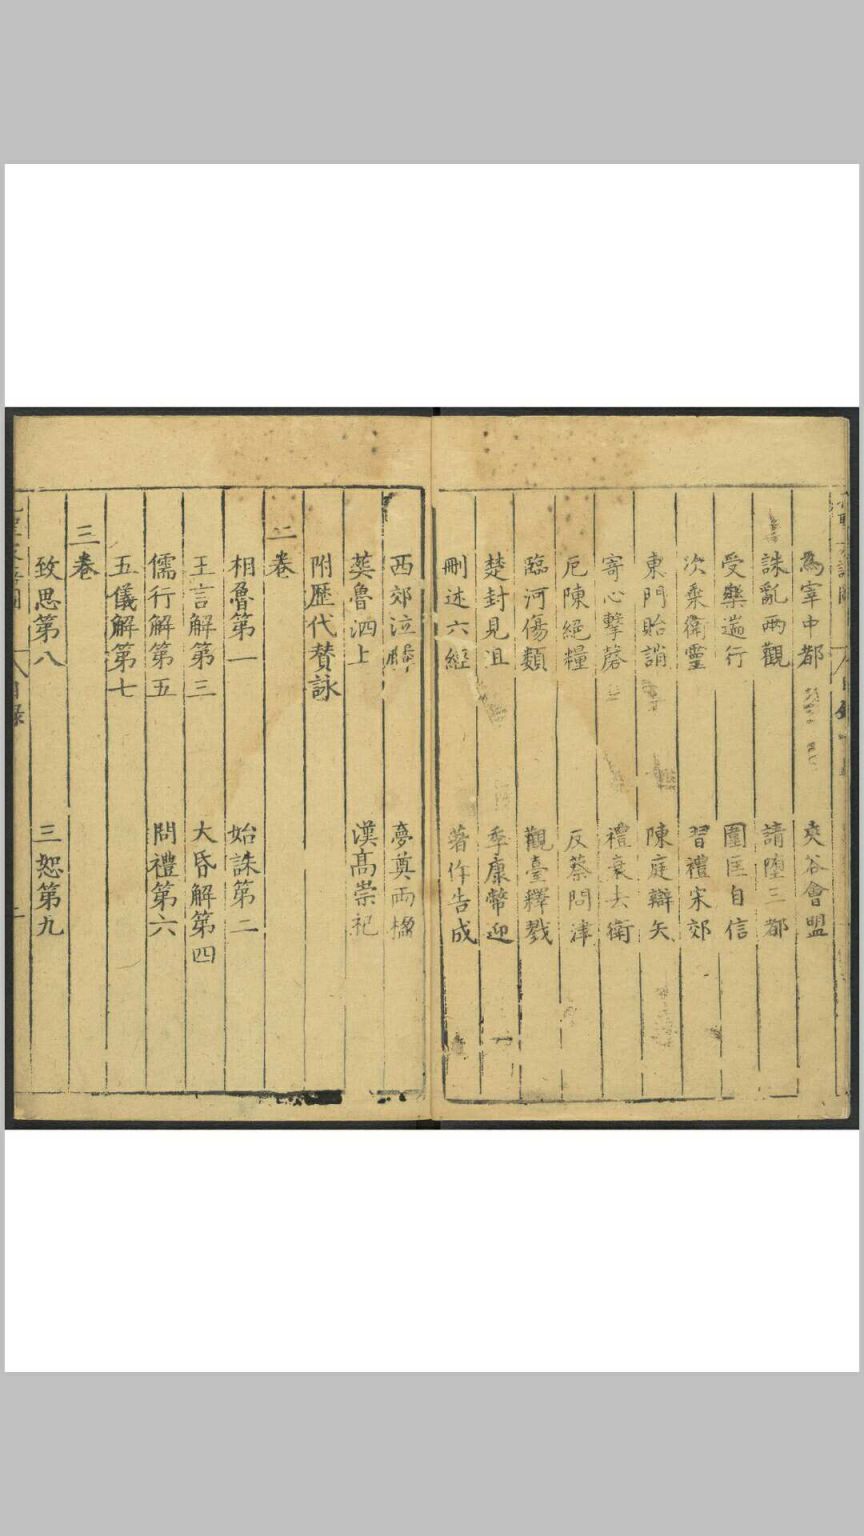 為宰中都 夾谷會盟
誅亂兩觀 請墮三都
受樂遄行 圍匡自信
次乘衛靈 習禮宋郊
東門貽誚 陳庭辯矢
寄心擊磬 禮衰去衛
厄陳絕糧 反蔡問津
臨河傷類 觀臺釋戮
楚封見沮 季康幣迎
刪述六經 著作告成
西郊泣麟 夢奠兩楹
葬魯泗上 漢高崇祀
附歷代贊詠
二卷
相魯第一 始誅第二
王言解第三 大昏解第四
儒行解第五 問禮第六
五儀解第七
三卷
致思第八 三恕第九